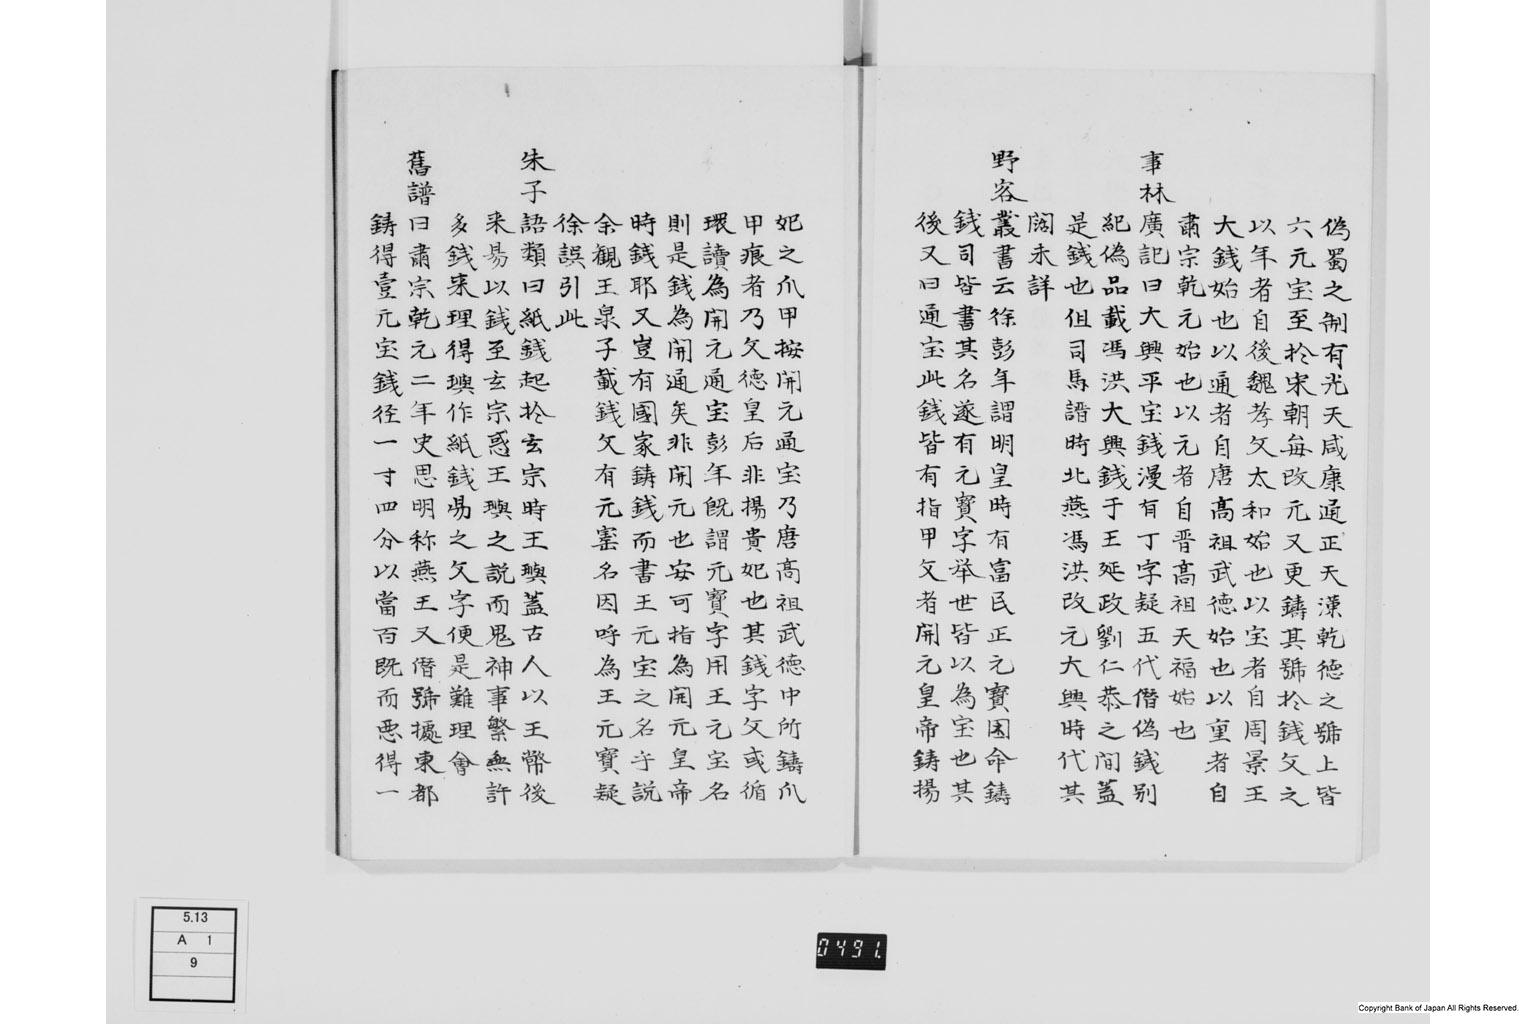 偽蜀之制有光天咸康通正天漢乾德之號上皆
六元宝至扵宋朝每改元又更鑄其號扵銭文之
以年者自後魏孝文太和始也以宝者自周景王
大銭始也以通者自唐高祖武徳始也以重者自
肅宗乾元始也以元者自晋高祖天福始也
事林廣記曰大興平宝銭漫有丁字疑五代僭偽銭别
紀偽品載馮洪大興銭于王延政劉仁恭之間蓋
是銭也但司馬譜時北燕馮洪改元大興時代其
闊未詳
野客叢書云徐彭年謂明皇時有富民王元寶因命鑄
銭司皆書其名遂有元寶字举世皆以為宝也其
後又曰通宝此銭皆有指甲文者開元皇帝鋳揚
妃之爪甲按開元通宝乃唐高祖武徳中所鑄爪
甲痕者乃文德皇后非揚貴妃也其銭字文或循
環讀為開元通宝彭年既謂元寶字用王元宝名
則是銭為開通矣非開元也安可指為開元皇帝
時銭耶又豈有國家鋳銭而書王元宝之名于説
余観王泉子載銭文有元寳名因呼為王元寶疑
徐誤引此
朱子語類曰紙銭起扵玄宗時王璵蓋古人以王幣後
来易以銭至玄宗惑王璵之説而鬼神事繁無許
多銭来理得璵作紙銭易之文字便是難理會
舊譜曰肅宗乾元二年史思明称燕王又僭號據東都
鋳得壹元宝銭径一寸四分以當百既而悪得一
5.13
A 1
9
0491.
Copyright Bank of Japan All Rights Reserved.